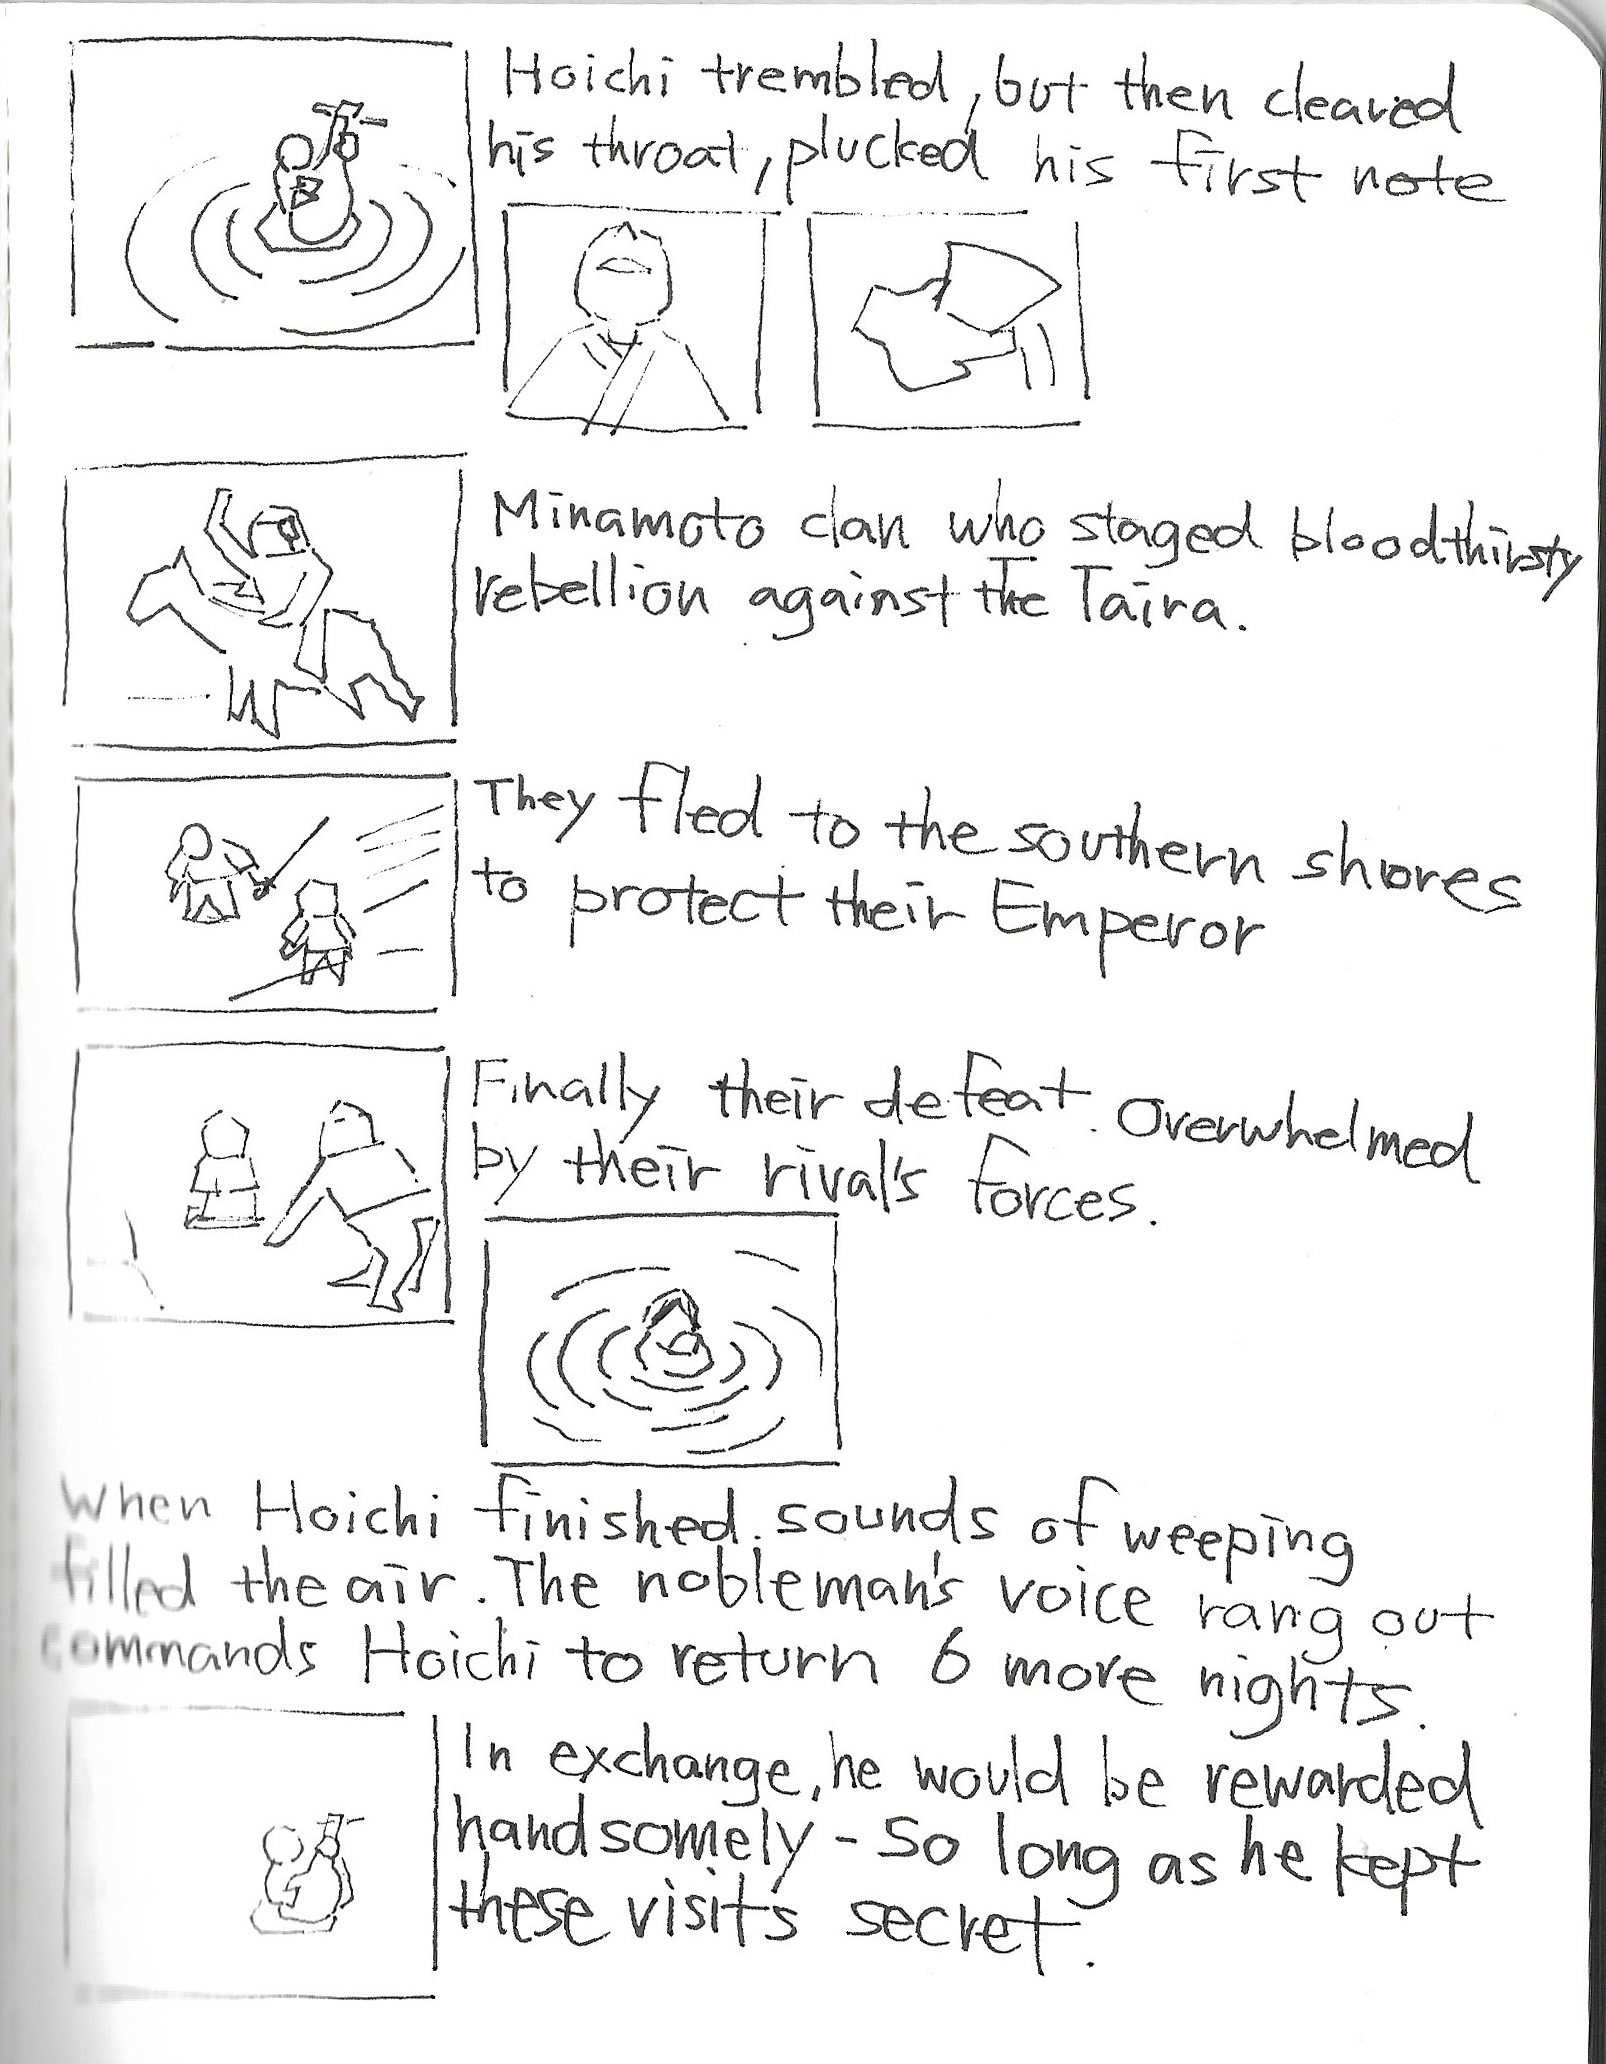 Hoichi trembled, but then cleared
his throat, plucked his first note
Minamoto clan who staged bloodthirsty
rebellion against the Taira.
They fled to the southern shores
to protect their Emperor
Finally their defeat. Overwhelmed
by their rival's forces.
When Hoichi finished. sounds of weeping
filled the air. The nobleman's voice rang out
commands Hoichi to return 6 more nights.
In exchange, he would be rewarded
handsomely - So long as he kept
these visits secret.